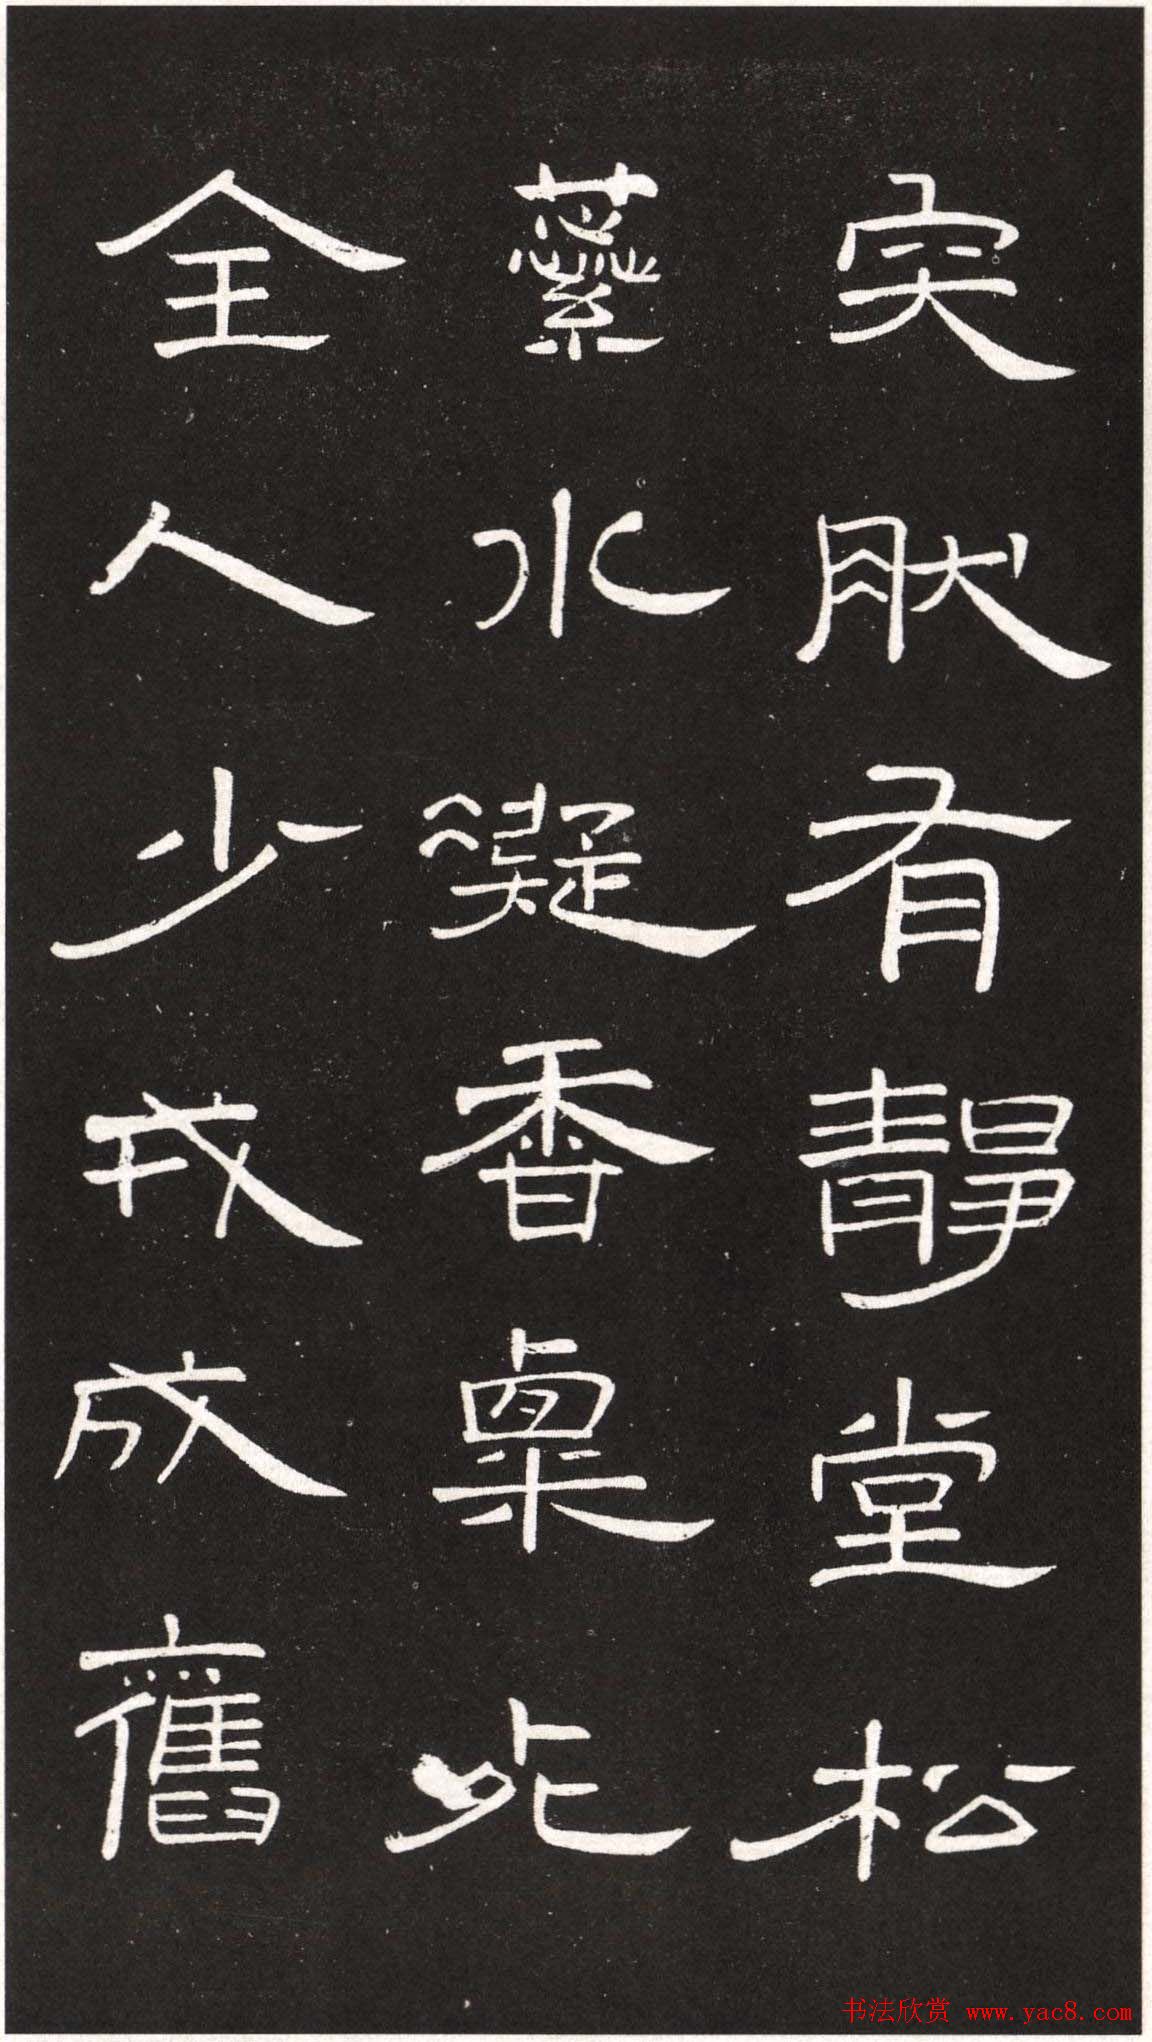 奐肰有靜堂松
蘂水凝香粟此
全人少戎成舊
书法欣赏 www.yac8.com